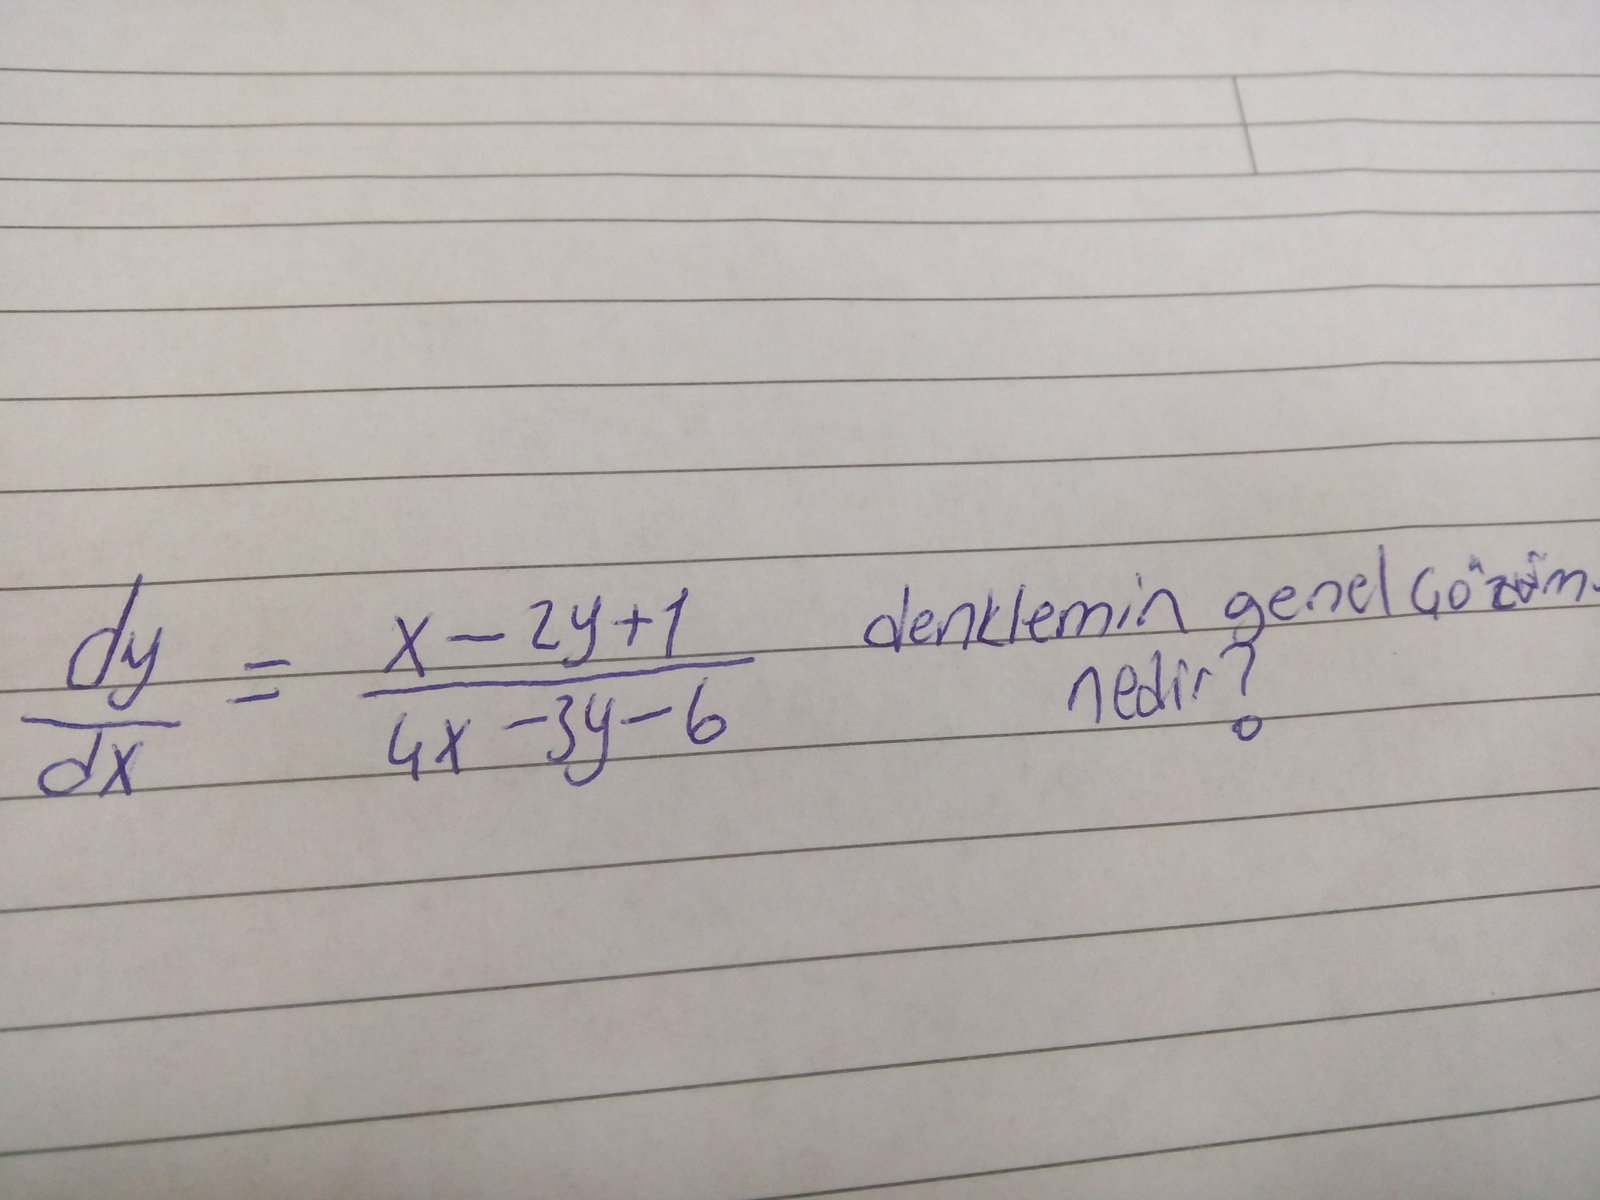 dy/dx = x - 2y + 1 / 4x - 3y - 6 denklemin genel çözüm
nedir?